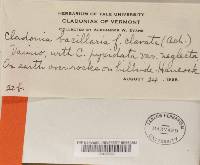 HERBARIUM OF YALE UNIVERSITY
CLADONIAE OF VERMONT
COLLECTED BY ALEXANDER W. EVANS
Cladonia bacillaris f. clavata (Ach.)
Vainio, with C. pyxidata var. neglecta
On earth over rocks on hillside, Hancock
AUGUST
FARLOW HERBARIUM
HARVARD